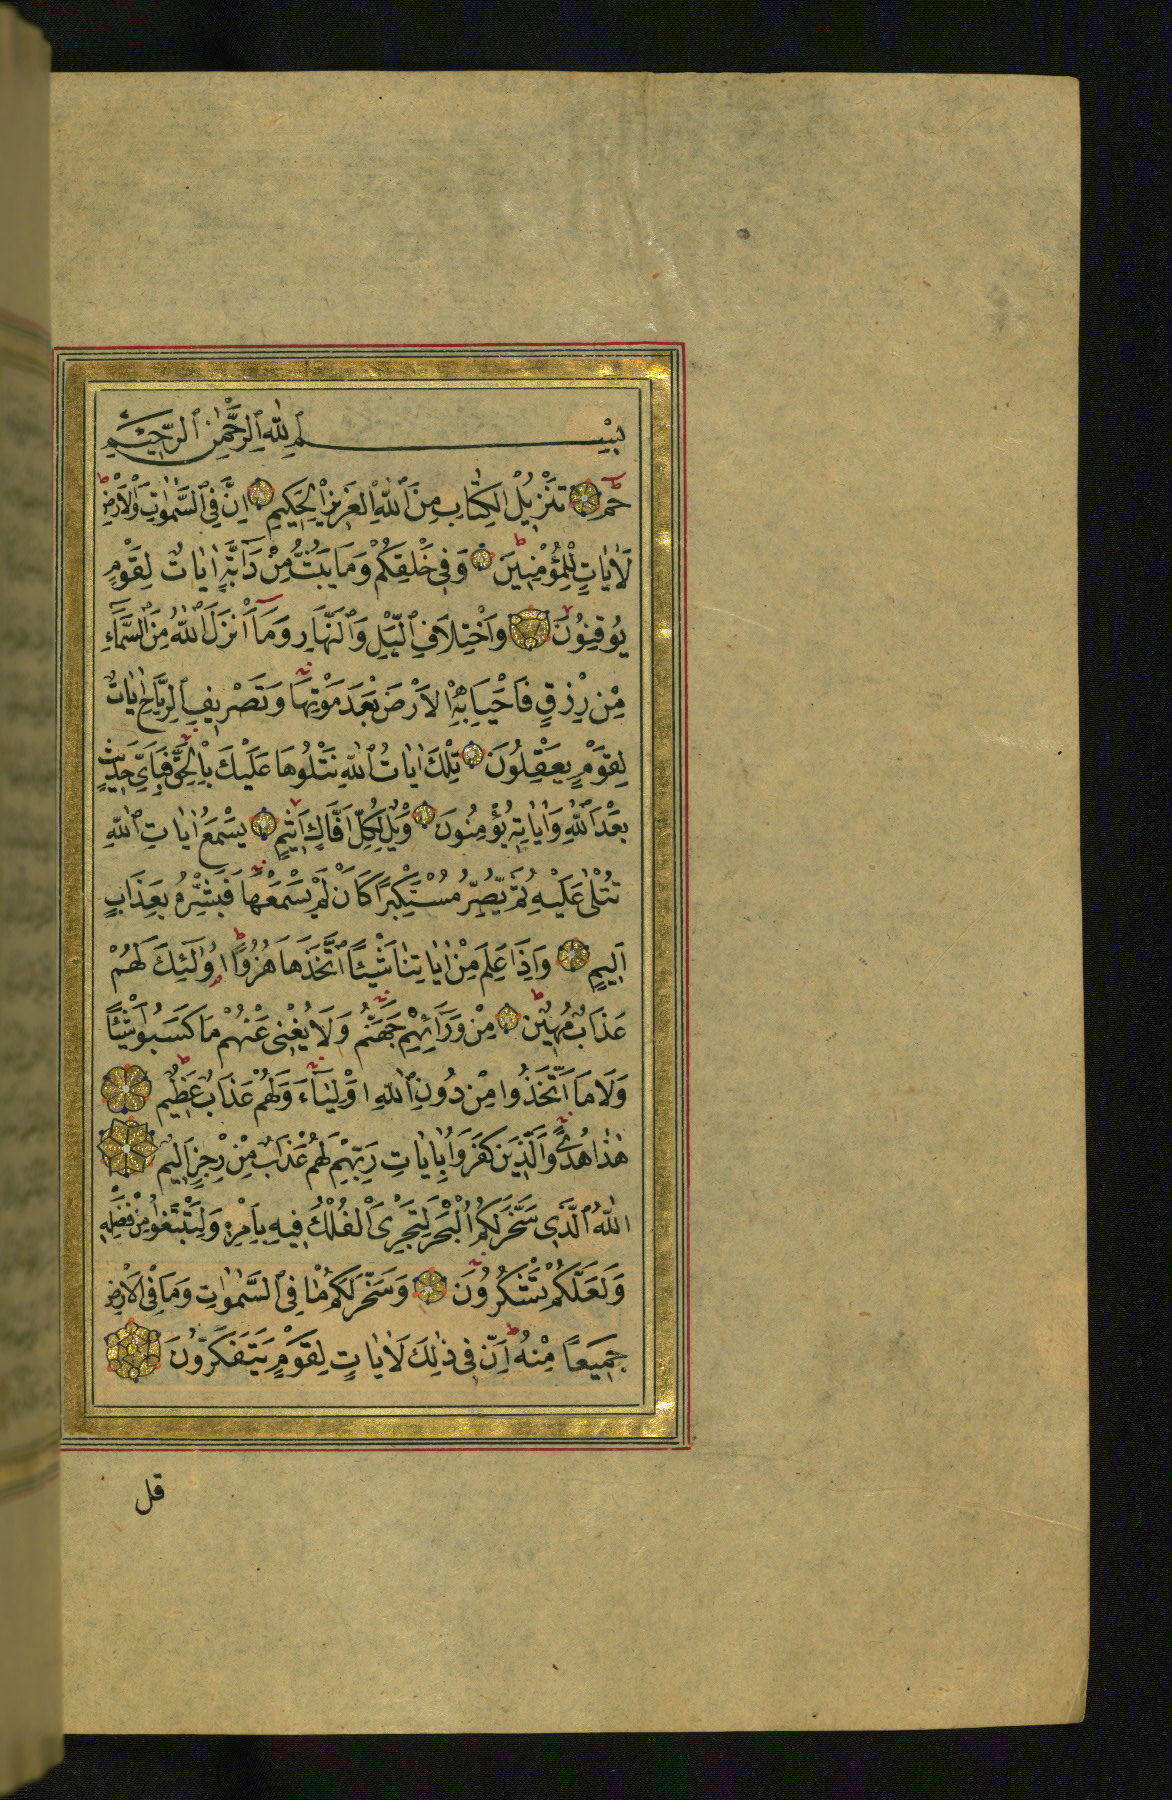 بِسْمِ ٱللّٰهِ ٱلرَّحْمٰنِ ٱلرَّحِيمِ
حٰمٓ تَنْزِيلُ الْكِتَابِ مِنَ ٱللّٰهِ الْعَزِيزِ الْحَكِيمِ اِنَّ فِى ٱلسَّمٰوَاتِ وَالْاَرْضِ ط
لَاٰيَاتٍ لِلْمُؤْمِنِينَ ط وَفِى خَلْقِكُمْ وَمَا يَبُثُّ مِنْ دَآبَّةٍ اٰيَاتٌ لِقَوْمٍ
يُوقِنُونَ وَاخْتِلَافِ ٱلَّيْلِ وَٱلنَّهَارِ وَمَٓا اَنْزَلَ ٱللّٰهُ مِنَ ٱلسَّمَٓاءِ
مِنْ رِزْقٍ فَاَحْيَا بِهِ الْاَرْضَ بَعْدَ مَوْتِهَا وَتَصْرِيفِ ٱلرِّيَاحِ اٰيَاتٌ
لِقَوْمٍ يَعْقِلُونَ تِلْكَ اٰيَاتُ ٱللّٰهِ نَتْلُوهَا عَلَيْكَ بِالْحَقِّ فَبِاَىِّ حَدِيثٍ
بَعْدَ ٱللّٰهِ وَاٰيَاتِهِ يُؤْمِنُونَ وَيْلٌ لِكُلِّ اَفَّاكٍ اَثِيمٍ يَسْمَعُ اٰيَاتِ ٱللّٰهِ
تُتْلٰى عَلَيْهِ ثُمَّ يُصِرُّ مُسْتَكْبِرًا كَاَنْ لَمْ يَسْمَعْهَا فَبَشِّرْهُ بِعَذَابٍ
اَلِيمٍ وَاِذَا عَلِمَ مِنْ اٰيَاتِنَا شَيْئًا ٱتَّخَذَهَا هُزُوًا ط اُولٰٓئِكَ لَهُمْ
عَذَابٌ مُهِينٌ ط مِنْ وَرَٓائِهِمْ جَهَنَّمُ وَلَا يُغْنِى عَنْهُمْ مَا كَسَبُوا شَيْئًا
وَلَا مَا ٱتَّخَذُوا مِنْ دُونِ ٱللّٰهِ اَوْلِيَٓاءَ وَلَهُمْ عَذَابٌ عَظِيمٌ ط
هٰذَا هُدًى وَٱلَّذِينَ كَفَرُوا بِاٰيَاتِ رَبِّهِمْ لَهُمْ عَذَابٌ مِنْ رِجْزٍ اَلِيمٌ
اَللّٰهُ ٱلَّذِى سَخَّرَ لَكُمُ الْبَحْرَ لِتَجْرِىَ الْفُلْكُ فِيهِ بِاَمْرِهِ وَلِتَبْتَغُوا مِنْ فَضْلِهِ
وَلَعَلَّكُمْ تَشْكُرُونَ وَسَخَّرَ لَكُمْ مَا فِى ٱلسَّمٰوَاتِ وَمَا فِى الْاَرْضِ
جَمِيعًا مِنْهُ ط اِنَّ فِى ذٰلِكَ لَاٰيَاتٍ لِقَوْمٍ يَتَفَكَّرُونَ
قل